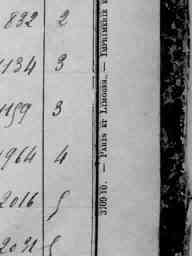 832 2
1134 3
1199 3
1964 4
2016 5
2021 5
37090 10. — PARIS ET LIMOGES. — IMPRIMERIE E